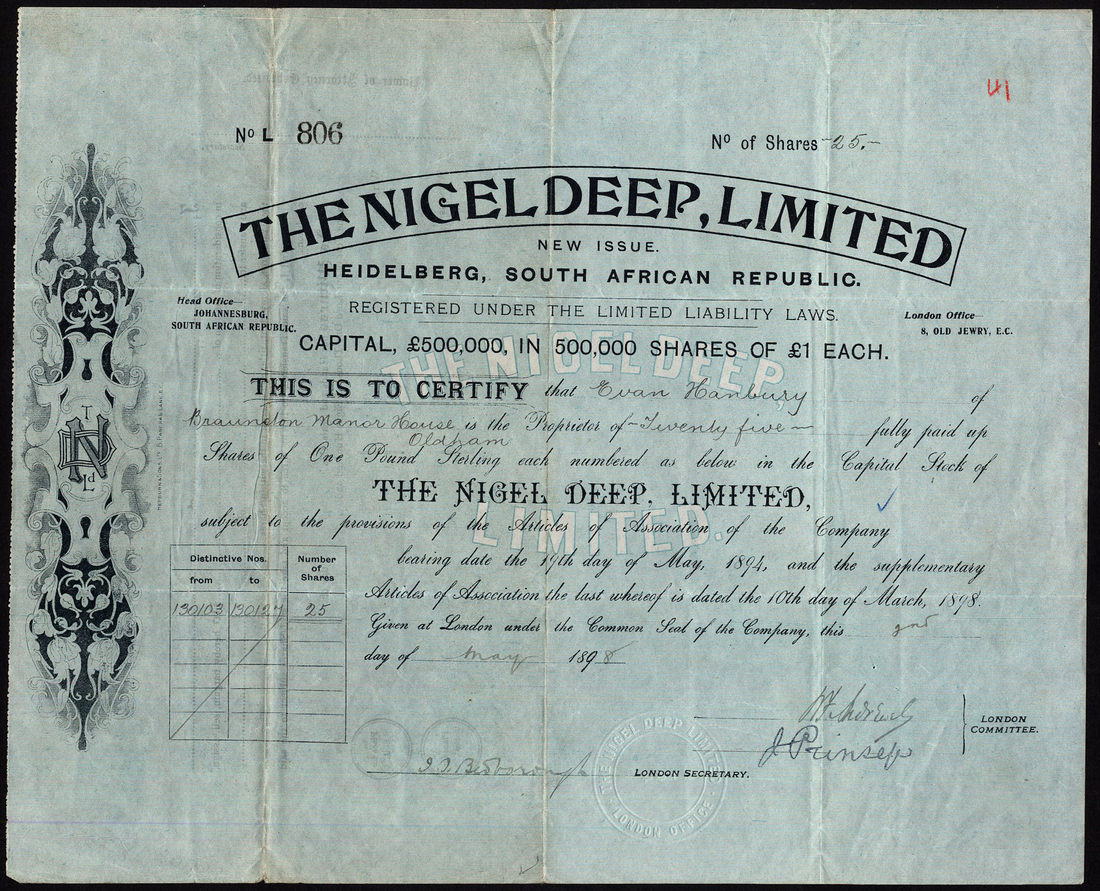 41
No L 806
No of Shares -25.-
THE NIGEL DEEP, LIMITED
NEW ISSUE.
HEIDELBERG, SOUTH AFRICAN REPUBLIC.
Head Office—
JOHANNESBURG,
SOUTH AFRICAN REPUBLIC.
REGISTERED UNDER THE LIMITED LIABILITY LAWS.
London Office—
8, OLD JEWRY, E.C.
CAPITAL, £500,000, IN 500,000 SHARES OF £1 EACH.
THE NIGEL DEEP,
LIMITED.
THIS IS TO CERTIFY that Evan Hanbury of
Braunston Manor House is the Proprietor of - Twenty five - fully paid up
Oldham
Shares of One Pound Sterling each numbered as below in the Capital Stock of
THE NIGEL DEEP, LIMITED,
subject to the provisions of the Articles of Association of the Company
bearing date the 19th day of May, 1894, and the supplementary
Articles of Association the last whereof is dated the 10th day of March, 1898.
Given at London under the Common Seal of the Company, this 2nd
day of May 1898
Distinctive Nos. Number of Shares
from to
130103 130127 25
T ND Ld
J Prinsep
LONDON COMMITTEE.
LONDON SECRETARY.
THE NIGEL DEEP LIMITED
LONDON OFFICE